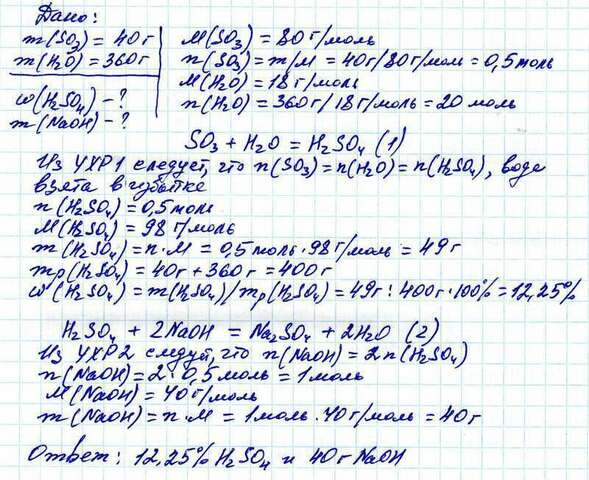 Дано:
m(SO₃) = 40г
m(H₂O) = 360г
w(H₂SO₄) - ?
m(NaOH) - ?
M(SO₃) = 80г/моль
n(SO₃) = m/M = 40г/80г/моль = 0,5моль
M(H₂O) = 18г/моль
n(H₂O) = 360г/18г/моль = 20 моль
SO₃ + H₂O = H₂SO₄ (1)
Из УХР1 следует, что n(SO₃) = n(H₂O) = n(H₂SO₄), вода
взята в избытке
n(H₂SO₄) = 0,5моль
M(H₂SO₄) = 98г/моль
m(H₂SO₄) = n·M = 0,5моль·98г/моль = 49г
mр(H₂SO₄) = 40г + 360г = 400г
w(H₂SO₄) = m(H₂SO₄)/mр(H₂SO₄) = 49г : 400г·100% = 12,25%
H₂SO₄ + 2NaOH = Na₂SO₄ + 2H₂O (2)
Из УХР2 следует, что n(NaOH) = 2n(H₂SO₄)
n(NaOH) = 2·0,5моль = 1моль
M(NaOH) = 40г/моль
m(NaOH) = n·M = 1моль·40г/моль = 40г
Ответ: 12,25% H₂SO₄ и 40г NaOH